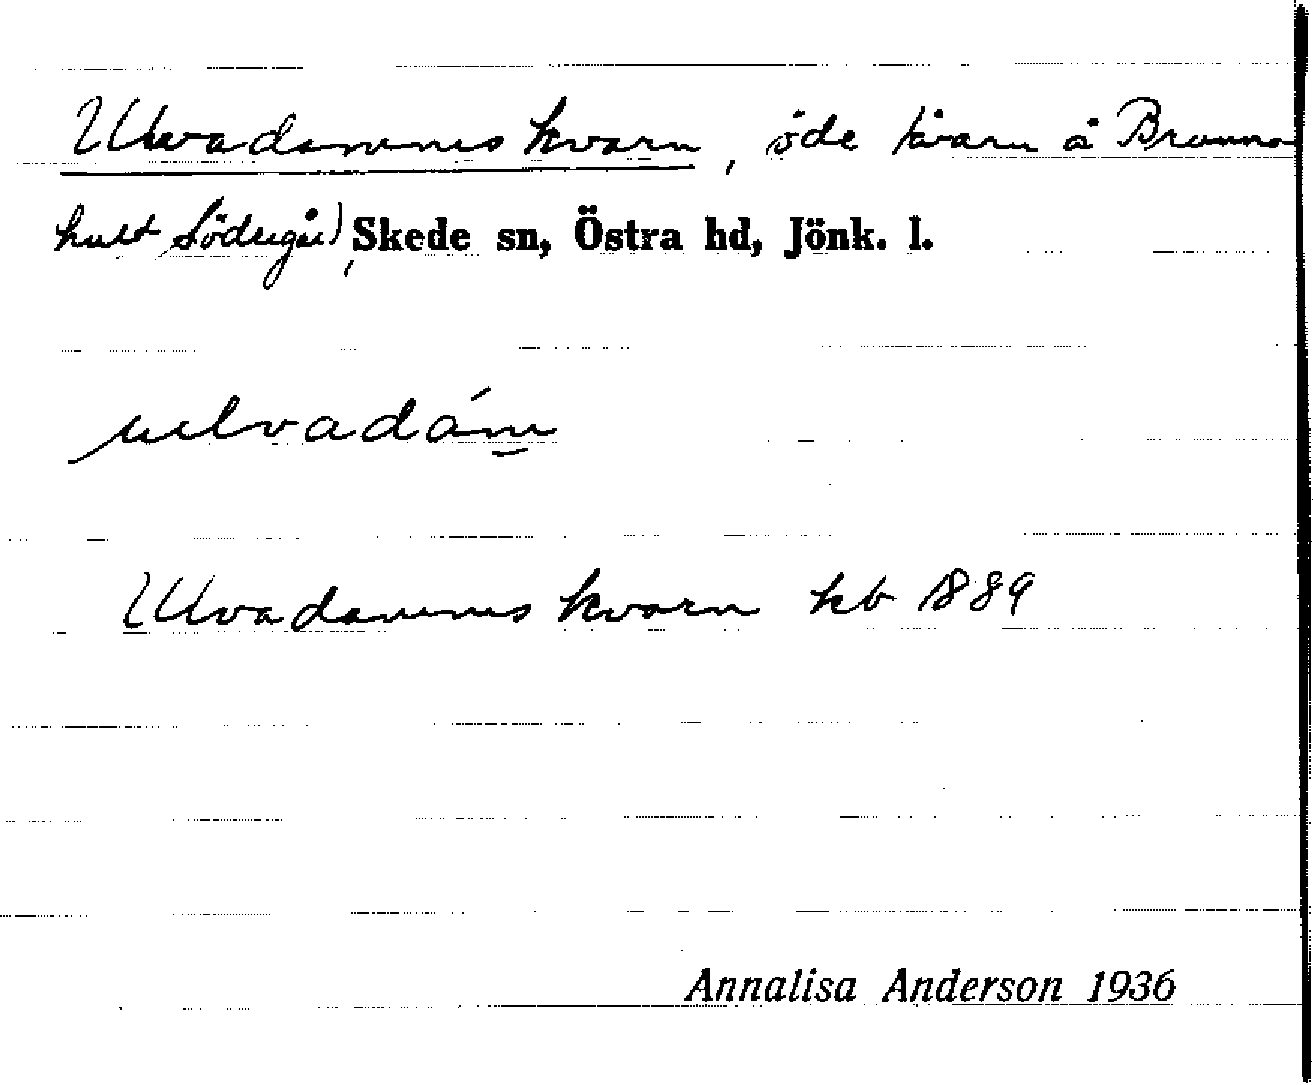 Ulvadammens kvarn, öde kvarn å Brunns-
hult Södergård, Skede sn, Östra hd, Jönk. l.
uelvadám
Ulvadammens kvarn kb 1889
Annalisa Anderson 1936